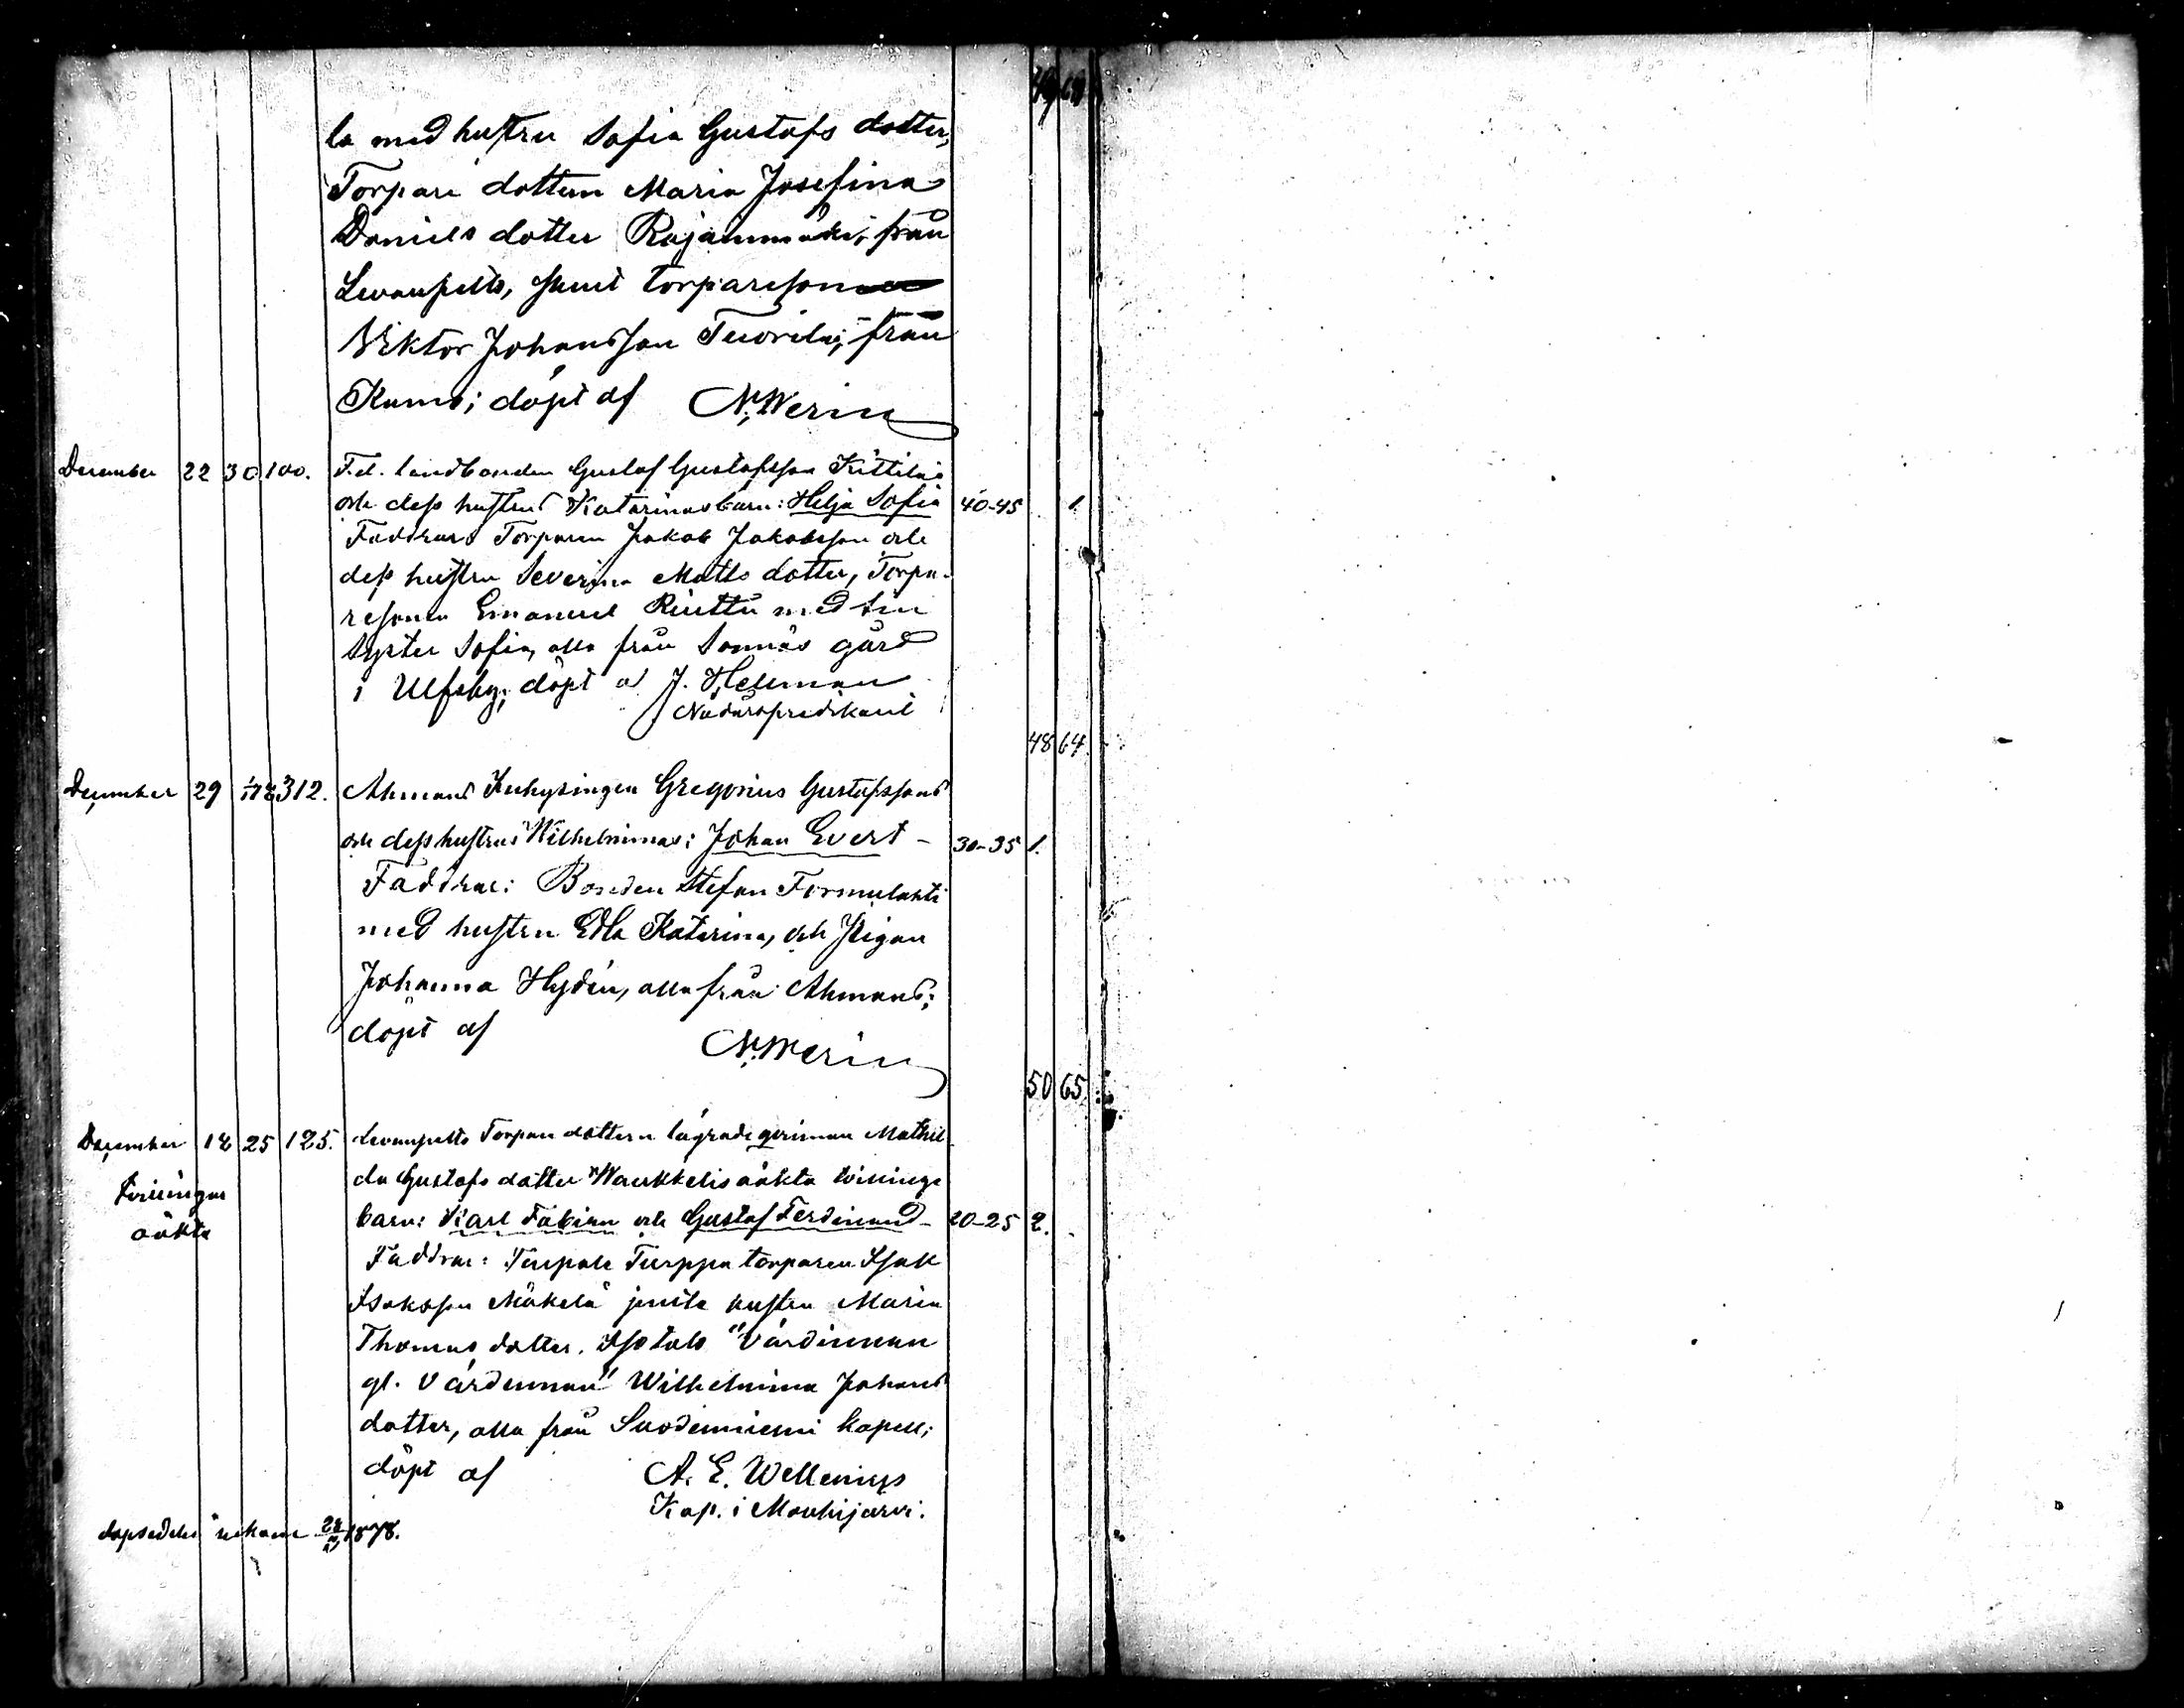 la med hustru Sofia Gustafs dotter,
Torpare dottern Maria Josefina
Daniels dotter Rajanmäki, från
Levanpelto, samt torpareson
Viktor Johansson Tuorila, från
Kumo; döpt af N. Werin
December 22 30 100. F.d. landbonden Gustaf Gustafsson Kittilä's
och dess hustrus Katarinas barn: Helja Sofia 40-45 1.
Faddrar: Torparen Jakob Jakobsson och
dess hustru Severina Matts dotter, Torpa-
resonen Emanuel Riuttu med sin
syster Sofia, alla från Sonnäs gård
i Ulfsby; döpt af J. Hellman
Nådårspredikant
48 64.
December 29 1/1 78 312. Ahmaus Inhysingen Gregorius Gustafssons
och dess hustrus Wilhelminas: Johan Evert - 30-35 1.
Faddrar: Bonden Stefan
med hustru Edla Katarina, och Pigan
Johanna Hydén, alla från Ahmaus;
döpt af
N. Werin
50 65.
December 18 25 125. Levanpelto Torpare dottern lägrade qvinnan Mathil-
da Gustafs dotter oäkta tvillinge
oäkta barn: Karl Fabian och Gustaf Ferdinand - 20-25 2.
Faddrar: torparen Isak
Isaksson Mäkelä jemte hustru Maria
Thomas dotter. "Värdinnan
gl. Värdinnan" Wilhelmina Johans
dotter, alla från Suodenniemi kapell;
döpt af A. E. Wellenius
Kap. i Mouhijärvi.
1878.